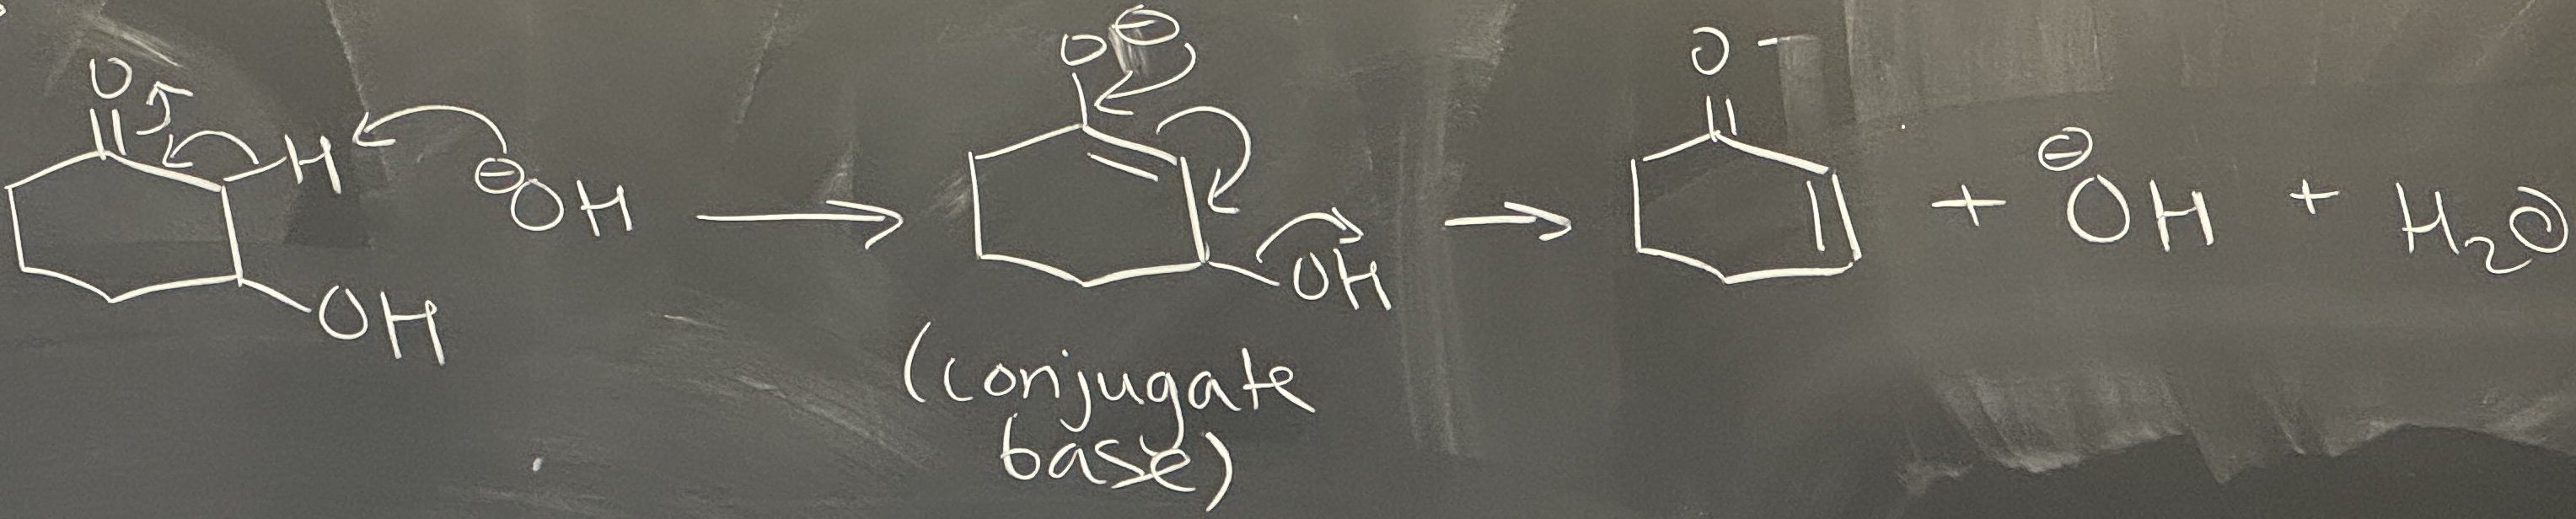 O H ⊖OH OH
O⊖ OH
(conjugate
base)
O⁻ + ⊖OH + H₂O